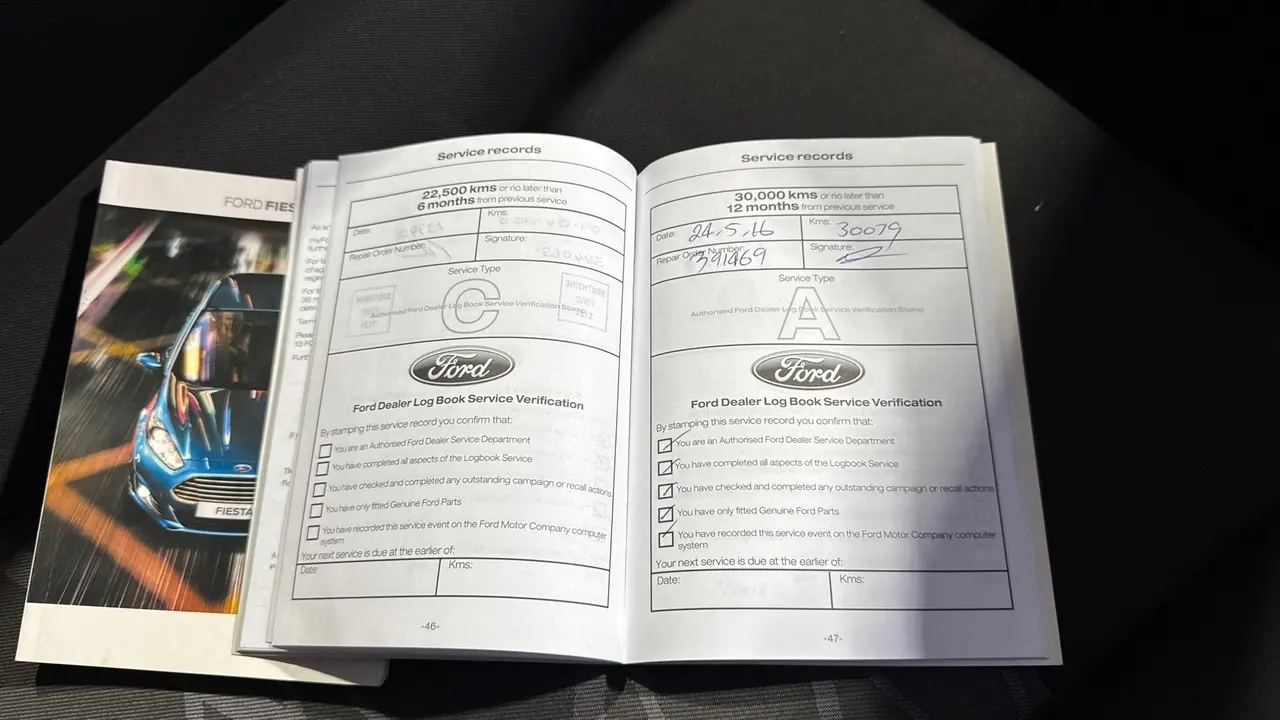 FORD FIES
FIESTA
Service records
22,500 kms or no later than
6 months from previous service
Date:
Kms:
Repair Order Number:
Signature:
Service Type
C
Authorised Ford Dealer Log Book Service Verification Stamp
Ford
Ford Dealer Log Book Service Verification
By stamping this service record you confirm that:
You are an Authorised Ford Dealer Service Department
You have completed all aspects of the Logbook Service
You have checked and completed any outstanding campaign or recall actions
You have only fitted Genuine Ford Parts
You have recorded this service event on the Ford Motor Company computer
system
Your next service is due at the earlier of:
Date:
Kms:
-46-
Service records
30,000 kms or no later than
12 months from previous service
Date: 24.5.16
Kms: 30079
Repair Order Number:
391469
Signature:
Service Type
A
Authorised Ford Dealer Log Book Service Verification Stamp
Ford
Ford Dealer Log Book Service Verification
By stamping this service record you confirm that:
You are an Authorised Ford Dealer Service Department
You have completed all aspects of the Logbook Service
You have checked and completed any outstanding campaign or recall actions
You have only fitted Genuine Ford Parts
You have recorded this service event on the Ford Motor Company computer
system
Your next service is due at the earlier of:
Date:
Kms:
-47-